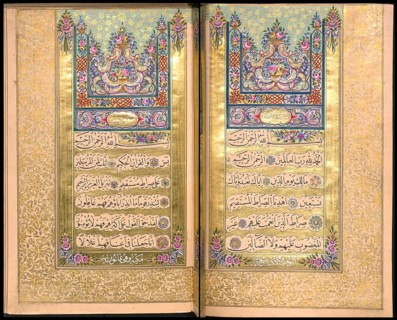 بسم الله الرحمن الرحيم
الحمد لله رب العالمين الرحمن الرحيم
مالك يوم الدين اياك نعبد واياك
نستعين اهدنا الصراط المستقيم
صراط الذين انعمت عليهم غير
المغضوب عليهم ولا الضالين
بسم الله الرحمن الرحيم
يس والقرآن الحكيم انك لمن المرسلين
على صراط مستقيم تنزيل العزيز الرحيم
لتنذر قوما ما انذر آباؤهم فهم غافلون
لقد حق القول على اكثرهم فهم لا يؤمنون
انا جعلنا في اعناقهم اغلالا